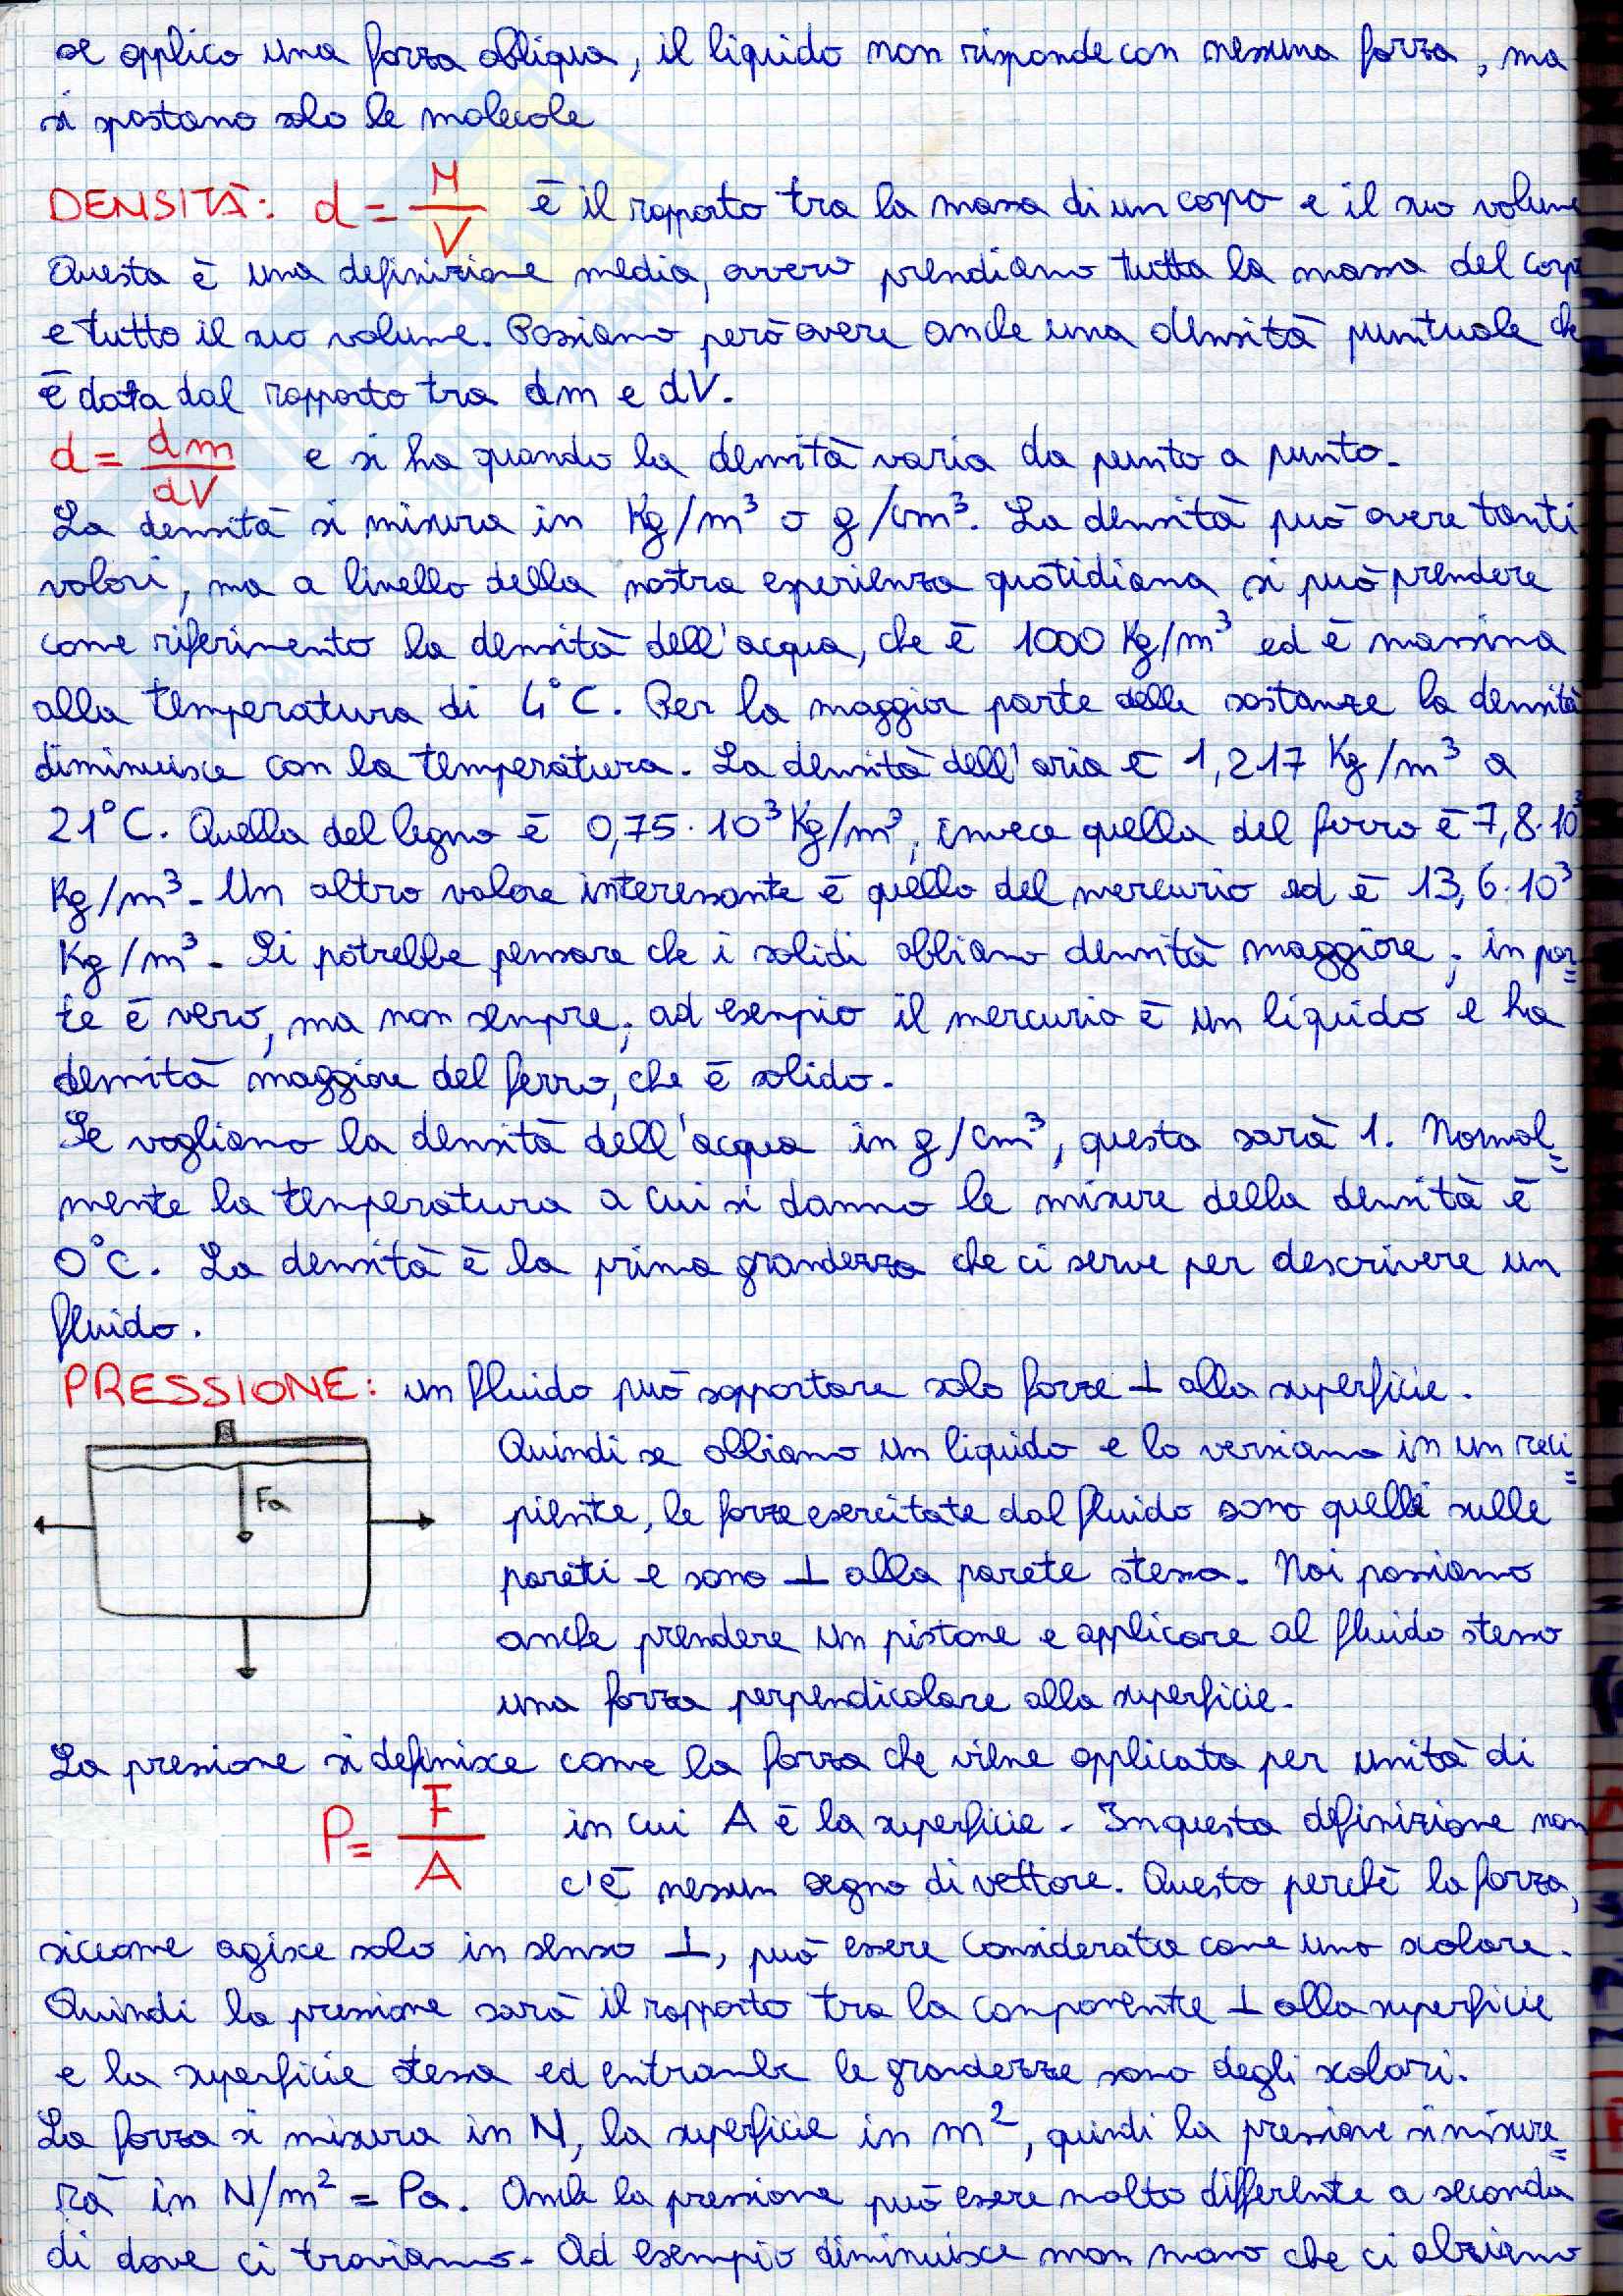 se applico una forza obliqua, il liquido non risponde con nessuna forza, ma
si spostano solo le molecole
DENSITÀ: d = M/V è il rapporto tra la massa di un corpo e il suo volume
Questa è una definizione media, ovvero prendiamo tutta la massa del corpo
e tutto il suo volume. Possiamo però avere anche una densità puntuale che
è data dal rapporto tra dm e dV.
d = dm/dV e si ha quando la densità varia da punto a punto.
La densità si misura in Kg/m³ o g/cm³. La densità può avere tanti
valori, ma a livello della nostra esperienza quotidiana si può prendere
come riferimento la densità dell'acqua, che è 1000 Kg/m³ ed è massima
alla temperatura di 4°C. Per la maggior parte delle sostanze la densità
diminuisce con la temperatura. La densità dell'aria è 1,217 Kg/m³ a
21°C. Quella del legno è 0,75·10³ Kg/m³, invece quella del ferro è 7,8·10³
Kg/m³. Un altro valore interessante è quello del mercurio ed è 13,6·10³
Kg/m³. Si potrebbe pensare che i solidi abbiano densità maggiore; in par=
te è vero, ma non sempre; ad esempio il mercurio è un liquido e ha
densità maggiore del ferro, che è solido.
Se vogliamo la densità dell'acqua in g/cm³, questa sarà 1. Normal=
mente la temperatura a cui si danno le misure della densità è
0°C. La densità è la prima grandezza che ci serve per descrivere un
fluido.
PRESSIONE: un fluido può sopportare solo forze ⊥ alla superficie.
Quindi se abbiamo un liquido e lo versiamo in un reci=
piente, le forze esercitate dal fluido sono quelle sulle
pareti e sono ⊥ alla parete stessa. Noi possiamo
anche prendere un pistone e applicare al fluido stesso
una forza perpendicolare alla superficie.
Fa
La pressione si definisce come la forza che viene applicata per unità di
P = F/A in cui A è la superficie. In questa definizione non
c'è nessun segno di vettore. Questo perchè la forza,
siccome agisce solo in senso ⊥, può essere considerata come uno scalare.
Quindi la pressione sarà il rapporto tra la componente ⊥ alla superficie
e la superficie stessa ed entrambe le grandezze sono degli scalari.
La forza si misura in N, la superficie in m², quindi la pressione si misure=
rà in N/m² = Pa. Anche la pressione può essere molto differente a seconda
di dove ci troviamo. Ad esempio diminuisce man mano che ci alziamo